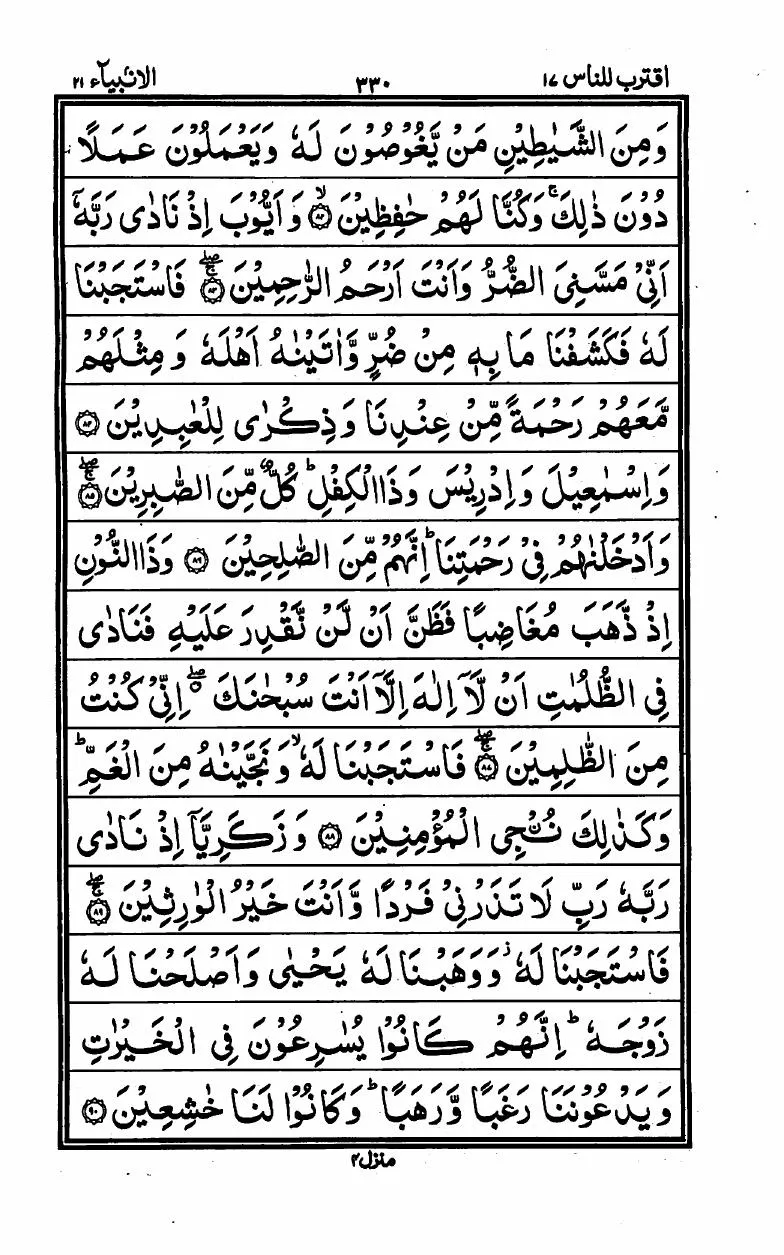 اقترب للناس ١٧ ٣٣٠ الانبیآء ٢١
وَمِنَ الشَّیٰطِیْنِ مَنْ یَّغُوْصُوْنَ لَهٗ وَیَعْمَلُوْنَ عَمَلًا
دُوْنَ ذٰلِكَ ۚ وَكُنَّا لَهُمْ حٰفِظِیْنَ ۙ﴿٨٢﴾ وَاَیُّوْبَ اِذْ نَادٰی رَبَّهٗۤ
اَنِّیْ مَسَّنِیَ الضُّرُّ وَاَنْتَ اَرْحَمُ الرّٰحِمِیْنَ ۚۖ﴿٨٣﴾ فَاسْتَجَبْنَا
لَهٗ فَكَشَفْنَا مَا بِهٖ مِنْ ضُرٍّ وَّاٰتَیْنٰهُ اَهْلَهٗ وَمِثْلَهُمْ
مَّعَهُمْ رَحْمَةً مِّنْ عِنْدِنَا وَذِكْرٰی لِلْعٰبِدِیْنَ ﴿٨٤﴾
وَاِسْمٰعِیْلَ وَاِدْرِیْسَ وَذَا الْكِفْلِ ؕ كُلٌّ مِّنَ الصّٰبِرِیْنَ ۚۖ﴿٨٥﴾
وَاَدْخَلْنٰهُمْ فِیْ رَحْمَتِنَا ؕ اِنَّهُمْ مِّنَ الصّٰلِحِیْنَ ﴿٨٦﴾ وَذَا النُّوْنِ
اِذْ ذَّهَبَ مُغَاضِبًا فَظَنَّ اَنْ لَّنْ نَّقْدِرَ عَلَیْهِ فَنَادٰی
فِی الظُّلُمٰتِ اَنْ لَّاۤ اِلٰهَ اِلَّاۤ اَنْتَ سُبْحٰنَكَ ۖۗ اِنِّیْ كُنْتُ
مِنَ الظّٰلِمِیْنَ ۚۖ﴿٨٧﴾ فَاسْتَجَبْنَا لَهٗ ۙ وَنَجَّیْنٰهُ مِنَ الْغَمِّ ؕ
وَكَذٰلِكَ نُـنْجِی الْمُؤْمِنِیْنَ ﴿٨٨﴾ وَزَكَرِیَّاۤ اِذْ نَادٰی
رَبَّهٗ رَبِّ لَا تَذَرْنِیْ فَرْدًا وَّاَنْتَ خَیْرُ الْوٰرِثِیْنَ ۚۖ﴿٨٩﴾
فَاسْتَجَبْنَا لَهٗ ؗ وَوَهَبْنَا لَهٗ یَحْیٰی وَاَصْلَحْنَا لَهٗ
زَوْجَهٗ ؕ اِنَّهُمْ كَانُوْا یُسٰرِعُوْنَ فِی الْخَیْرٰتِ
وَیَدْعُوْنَنَا رَغَبًا وَّرَهَبًا ؕ وَكَانُوْا لَنَا خٰشِعِیْنَ ﴿٩٠﴾
منزل٤